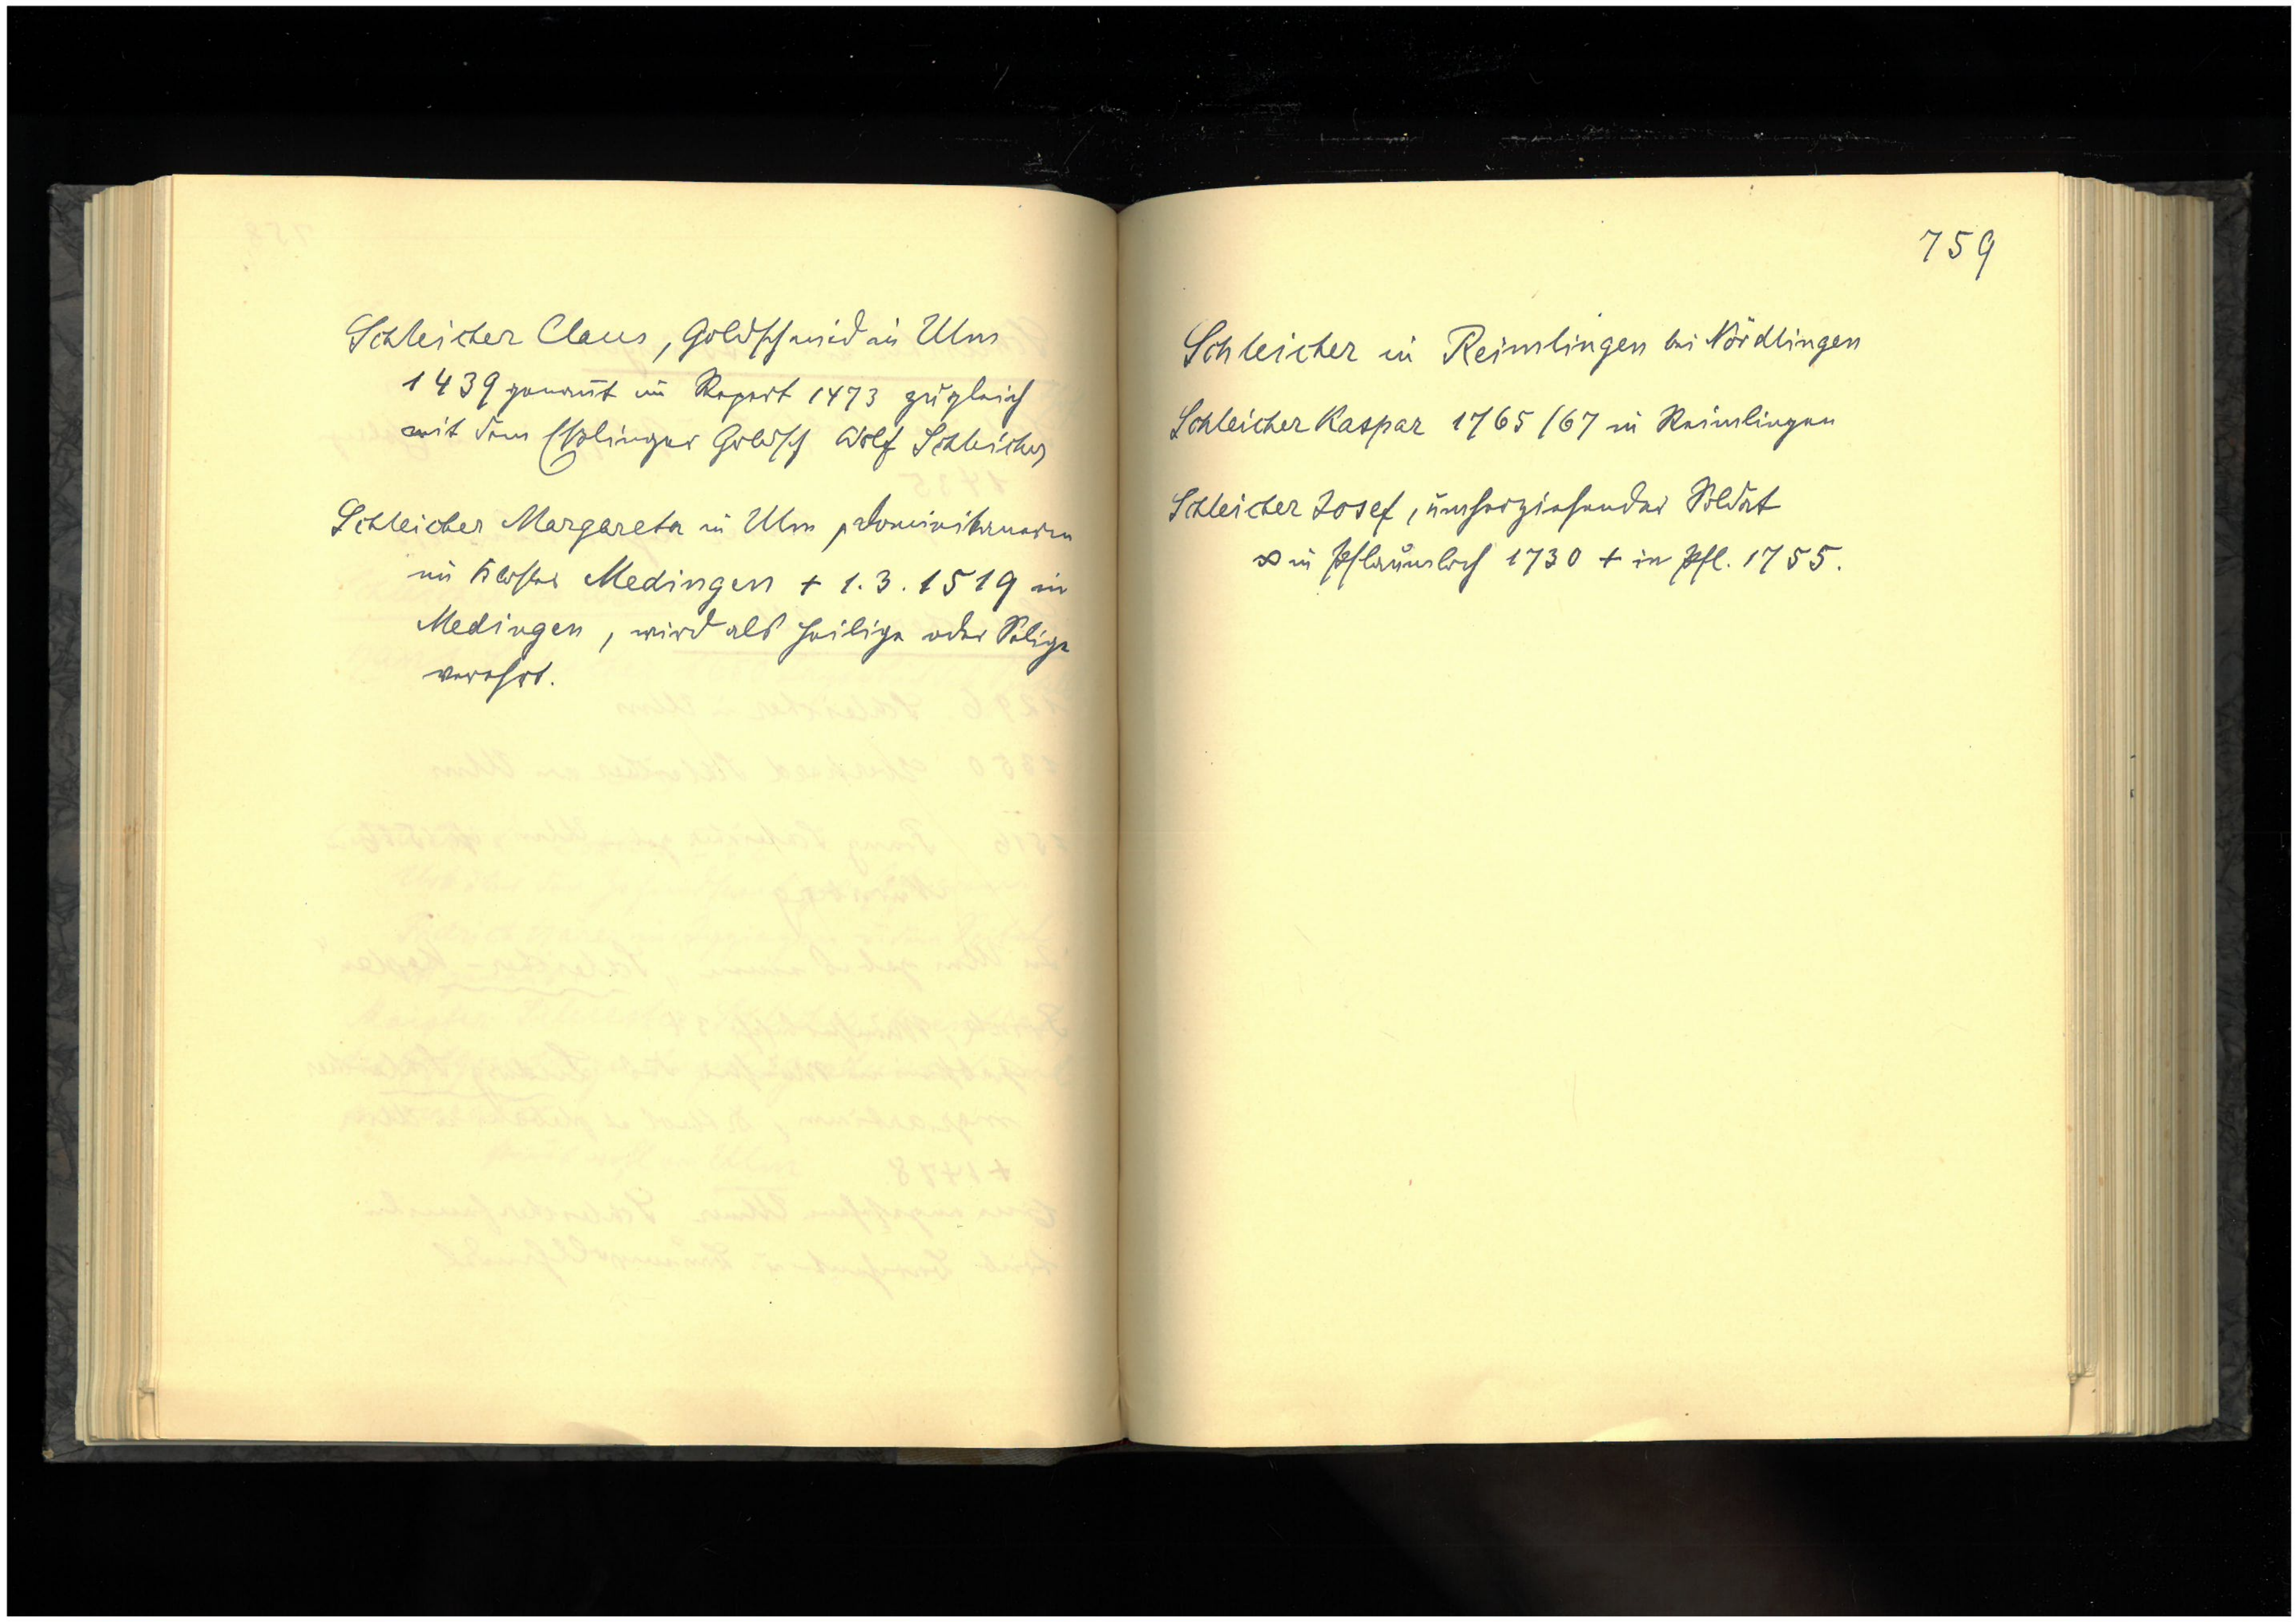 Schleicher Claus, Goldschmid in Ulm
1439 genannt im Repert 1473 zugleich
mit dem Esslinger Goldsch Wolf Schleicher
Schleicher Margareta in Ulm, Dominikanerin
im Kloster Medingen + 1.3.1519 in
Medingen, wird als Heilige oder Selige
verehrt.
759
Schleicher in Reimlingen bei Nördlingen
Schleicher Kaspar 1765/67 in Reimlingen
Schleicher Josef, umherziehender Soldat
∞ in Pflaumloch 1730 + in Pfl. 1755.